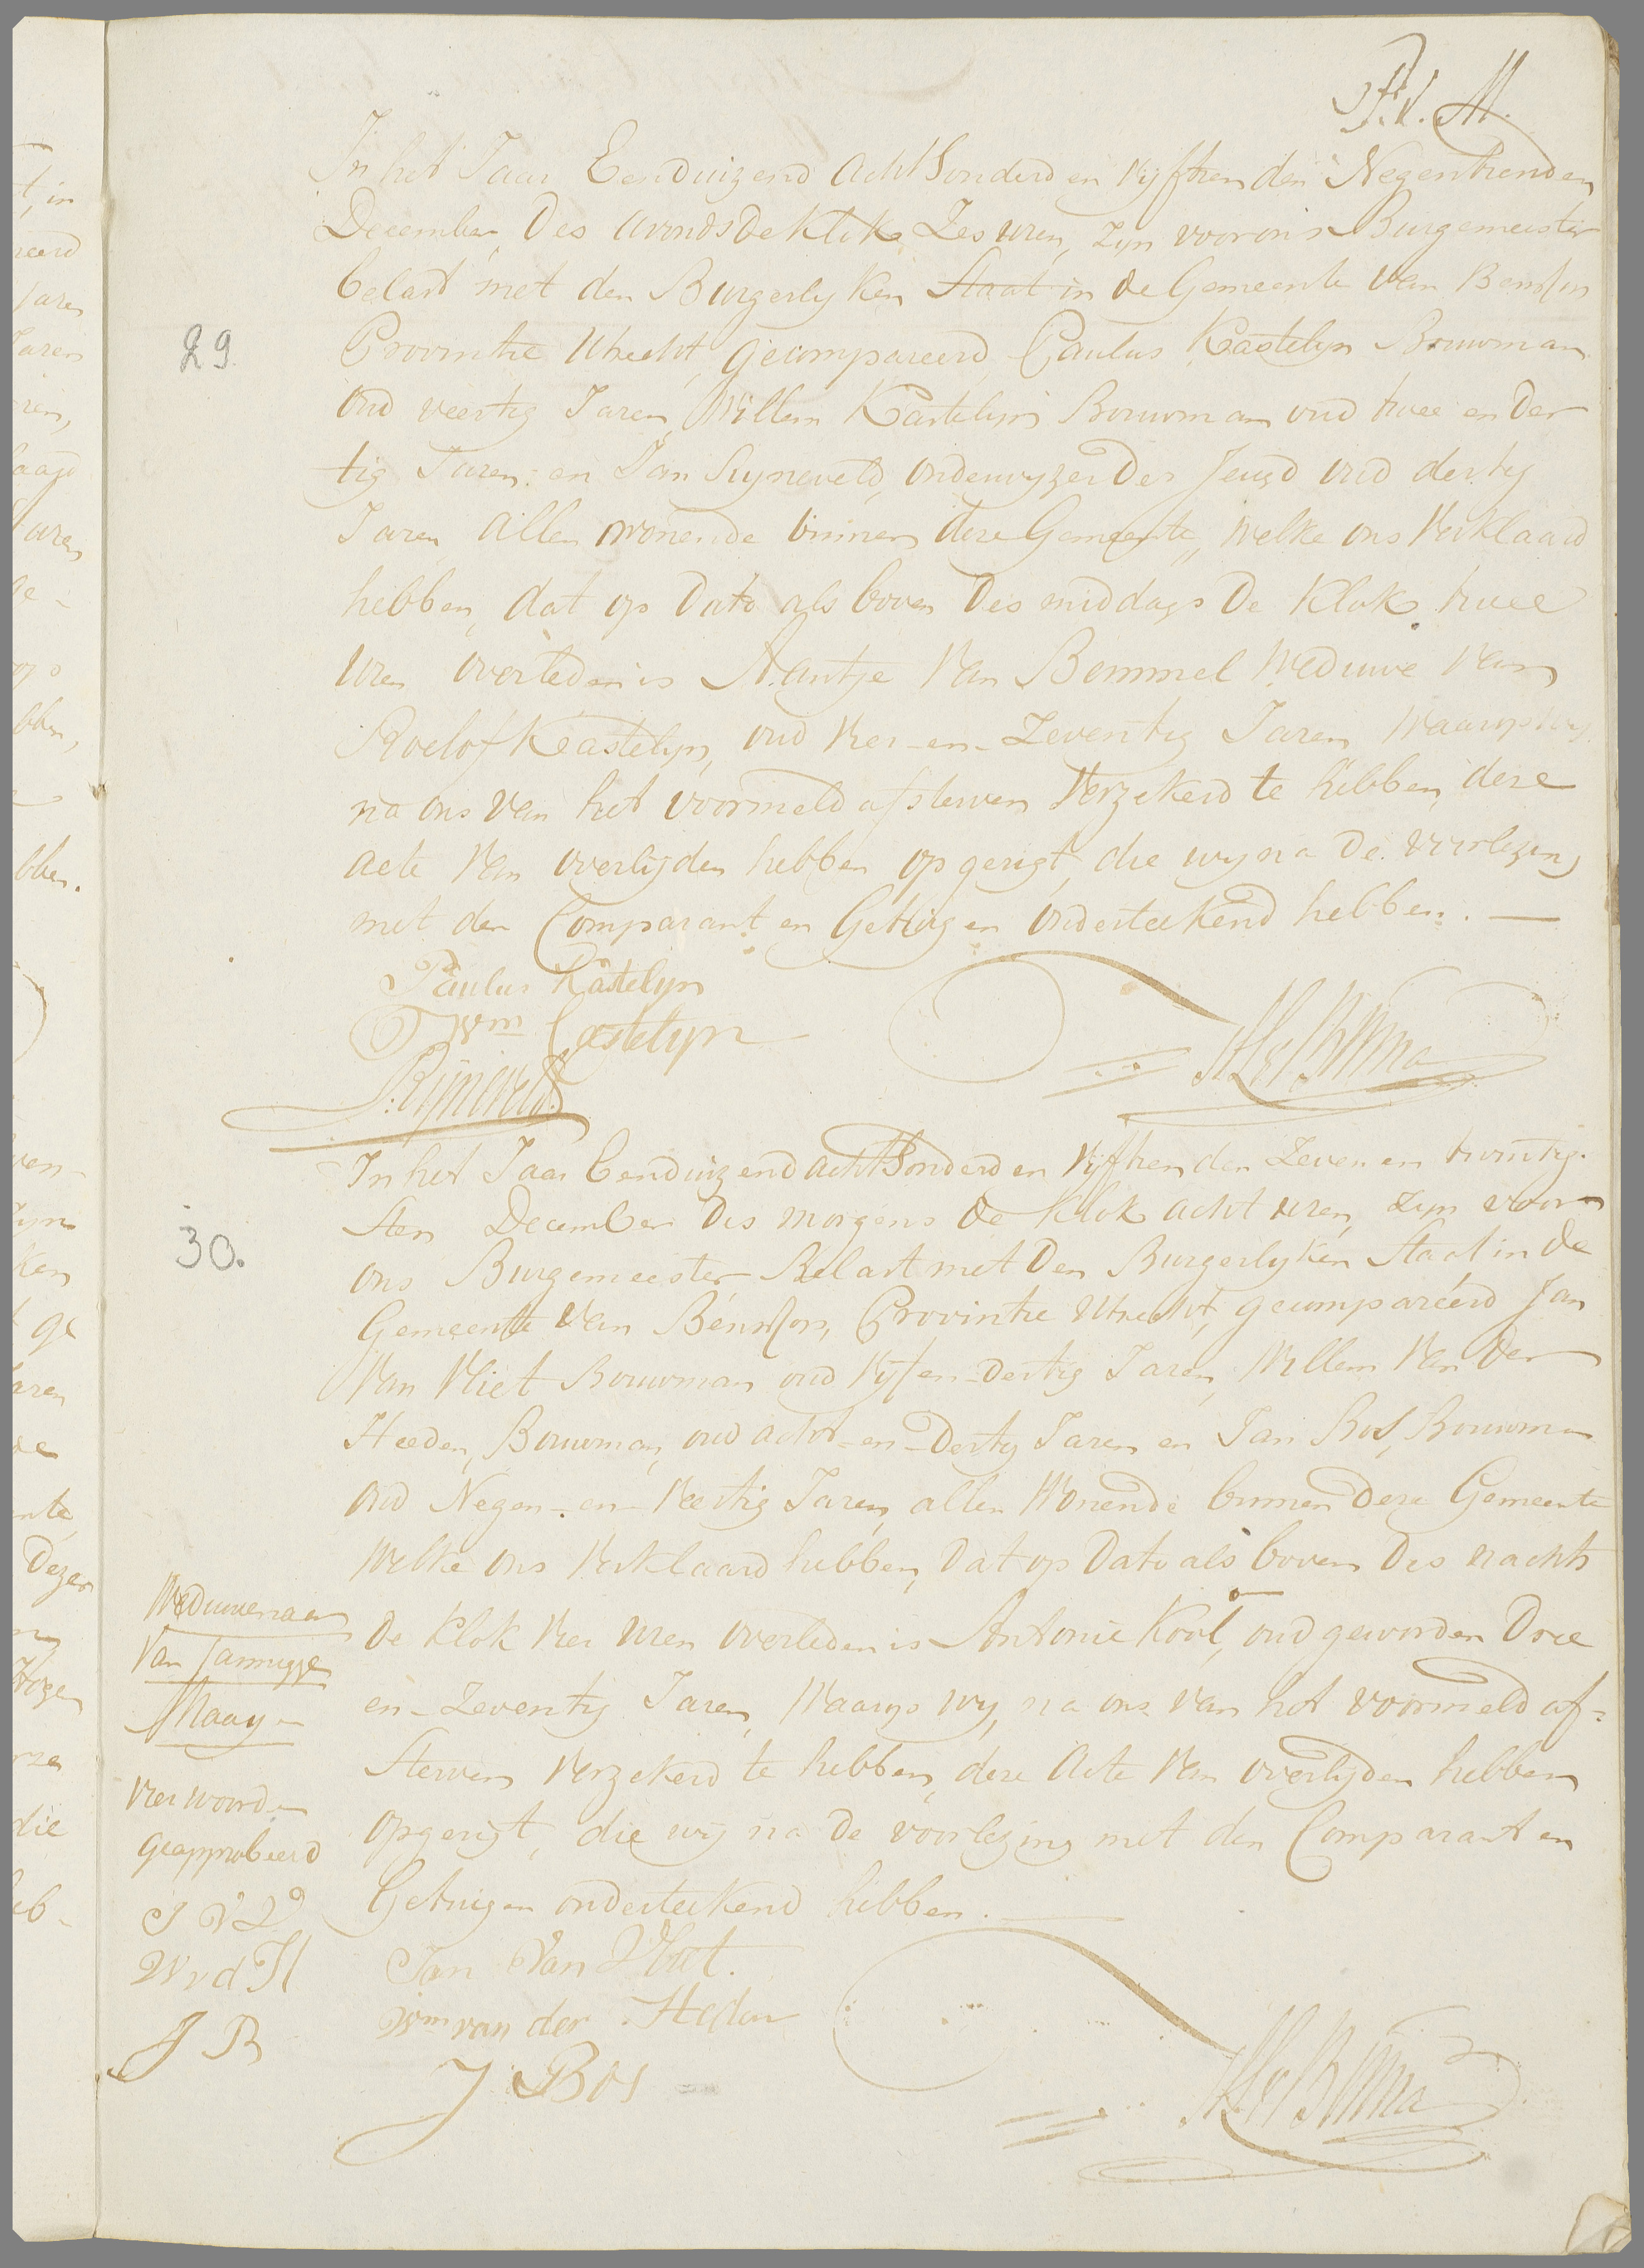 F.V.M.
In het Jaar Eenduizend Achthonderd en Vijftien den Negentienden
December, des avonds de Klok Zes uren, zijn voor ons Burgemeester
belast met den Burgerlyken Staat in de Gemeente van
Provintie Utrecht, gecompareerd Paulus Kastelyn Bouwman
29.
Oud veertig Jaren, Willem Kastelyn Bouwman oud twee en der
tig Jaren, en Jan Rijneveld, onderwyzer der Jeugd oud dertig
Jaren allen wonende binnen deze Gemeente, welke ons Verklaard
hebben, dat op Dato als boven des middags de Klok twee
Uren overleden is Aantje Van Bemmel Weduwe van
Roelof Kastelyn, oud Vier-en-Zeventig Jaren, Waarop wy,
na ons van het voormeld afsterven Verzekerd te hebben, deze
acte Van overlijden hebben opgerigt, die wij na de voorlezing
met den Comparant en Getuigen Onderteekend hebben. —
Paulus Kastelyn
Wm Castelyn
J. Rijneveld
In het Jaar Eenduizend Achthonderd en Vijftien den Zeven en twintig-
sten December des morgens de Klok acht uren, zijn voor
30.
ons Burgemeester Belast met den Burgerlyken Staat in de
Gemeente van Provintie Utrecht, gecompareerd Jan
Van Vliet Bouwman oud Vijf en dertig Jaren, Willem Van der
Heeden, Bouwman, oud acht-en-Dertig Jaren en Jan Bos, Bouwman
oud Negen-en-Veertig Jaren, allen Wonende binnen deze Gemeente
Welke ons Verklaard hebben, dat op Dato als boven des nachts
de Klok Vier Uren overleden is Antonie Kool, oud geworden Drie
en-Zeventig Jaren, Waarop wy, na ons van het voormeld af-
sterven Verzekerd te hebben, deze Acte Van overlijden hebben
opgerigt, die wij na de voorlezing met den Comparant en
Getuigen onderteekend hebben. —
Weduwenaar
Van Jannigje
Maay
Vier woorden
geapprobeerd
J V V
W v d H
J B
Jan Van Vliet.
Wm van der Heden
J Bos